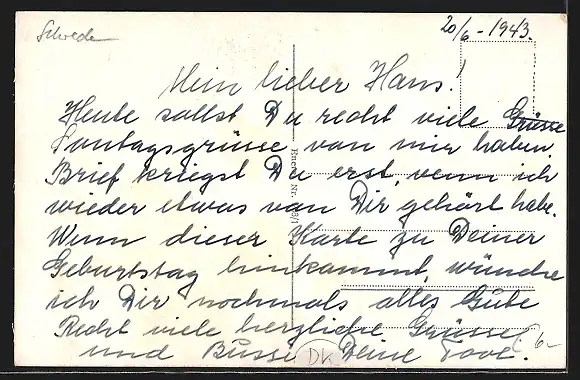 Schweden
20/6 - 1943.
Mein lieber Hans!
Heute sollst Du recht viele Grüsse
Sontagsgrüsse von mir haben.
Brief kriegst Du erst, wenn ich
wieder etwas von Dir gehört habe.
Wenn dieser Karte zu Deiner
Geburtstag hinkommt, wünche
ich Dir nochmals alles Gute
Recht viele herzliche Grüsse.
und Bussi Deine Tove.
DK
6-